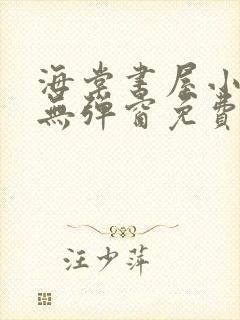 海棠書屋小
無彈窗免費
汪少萍